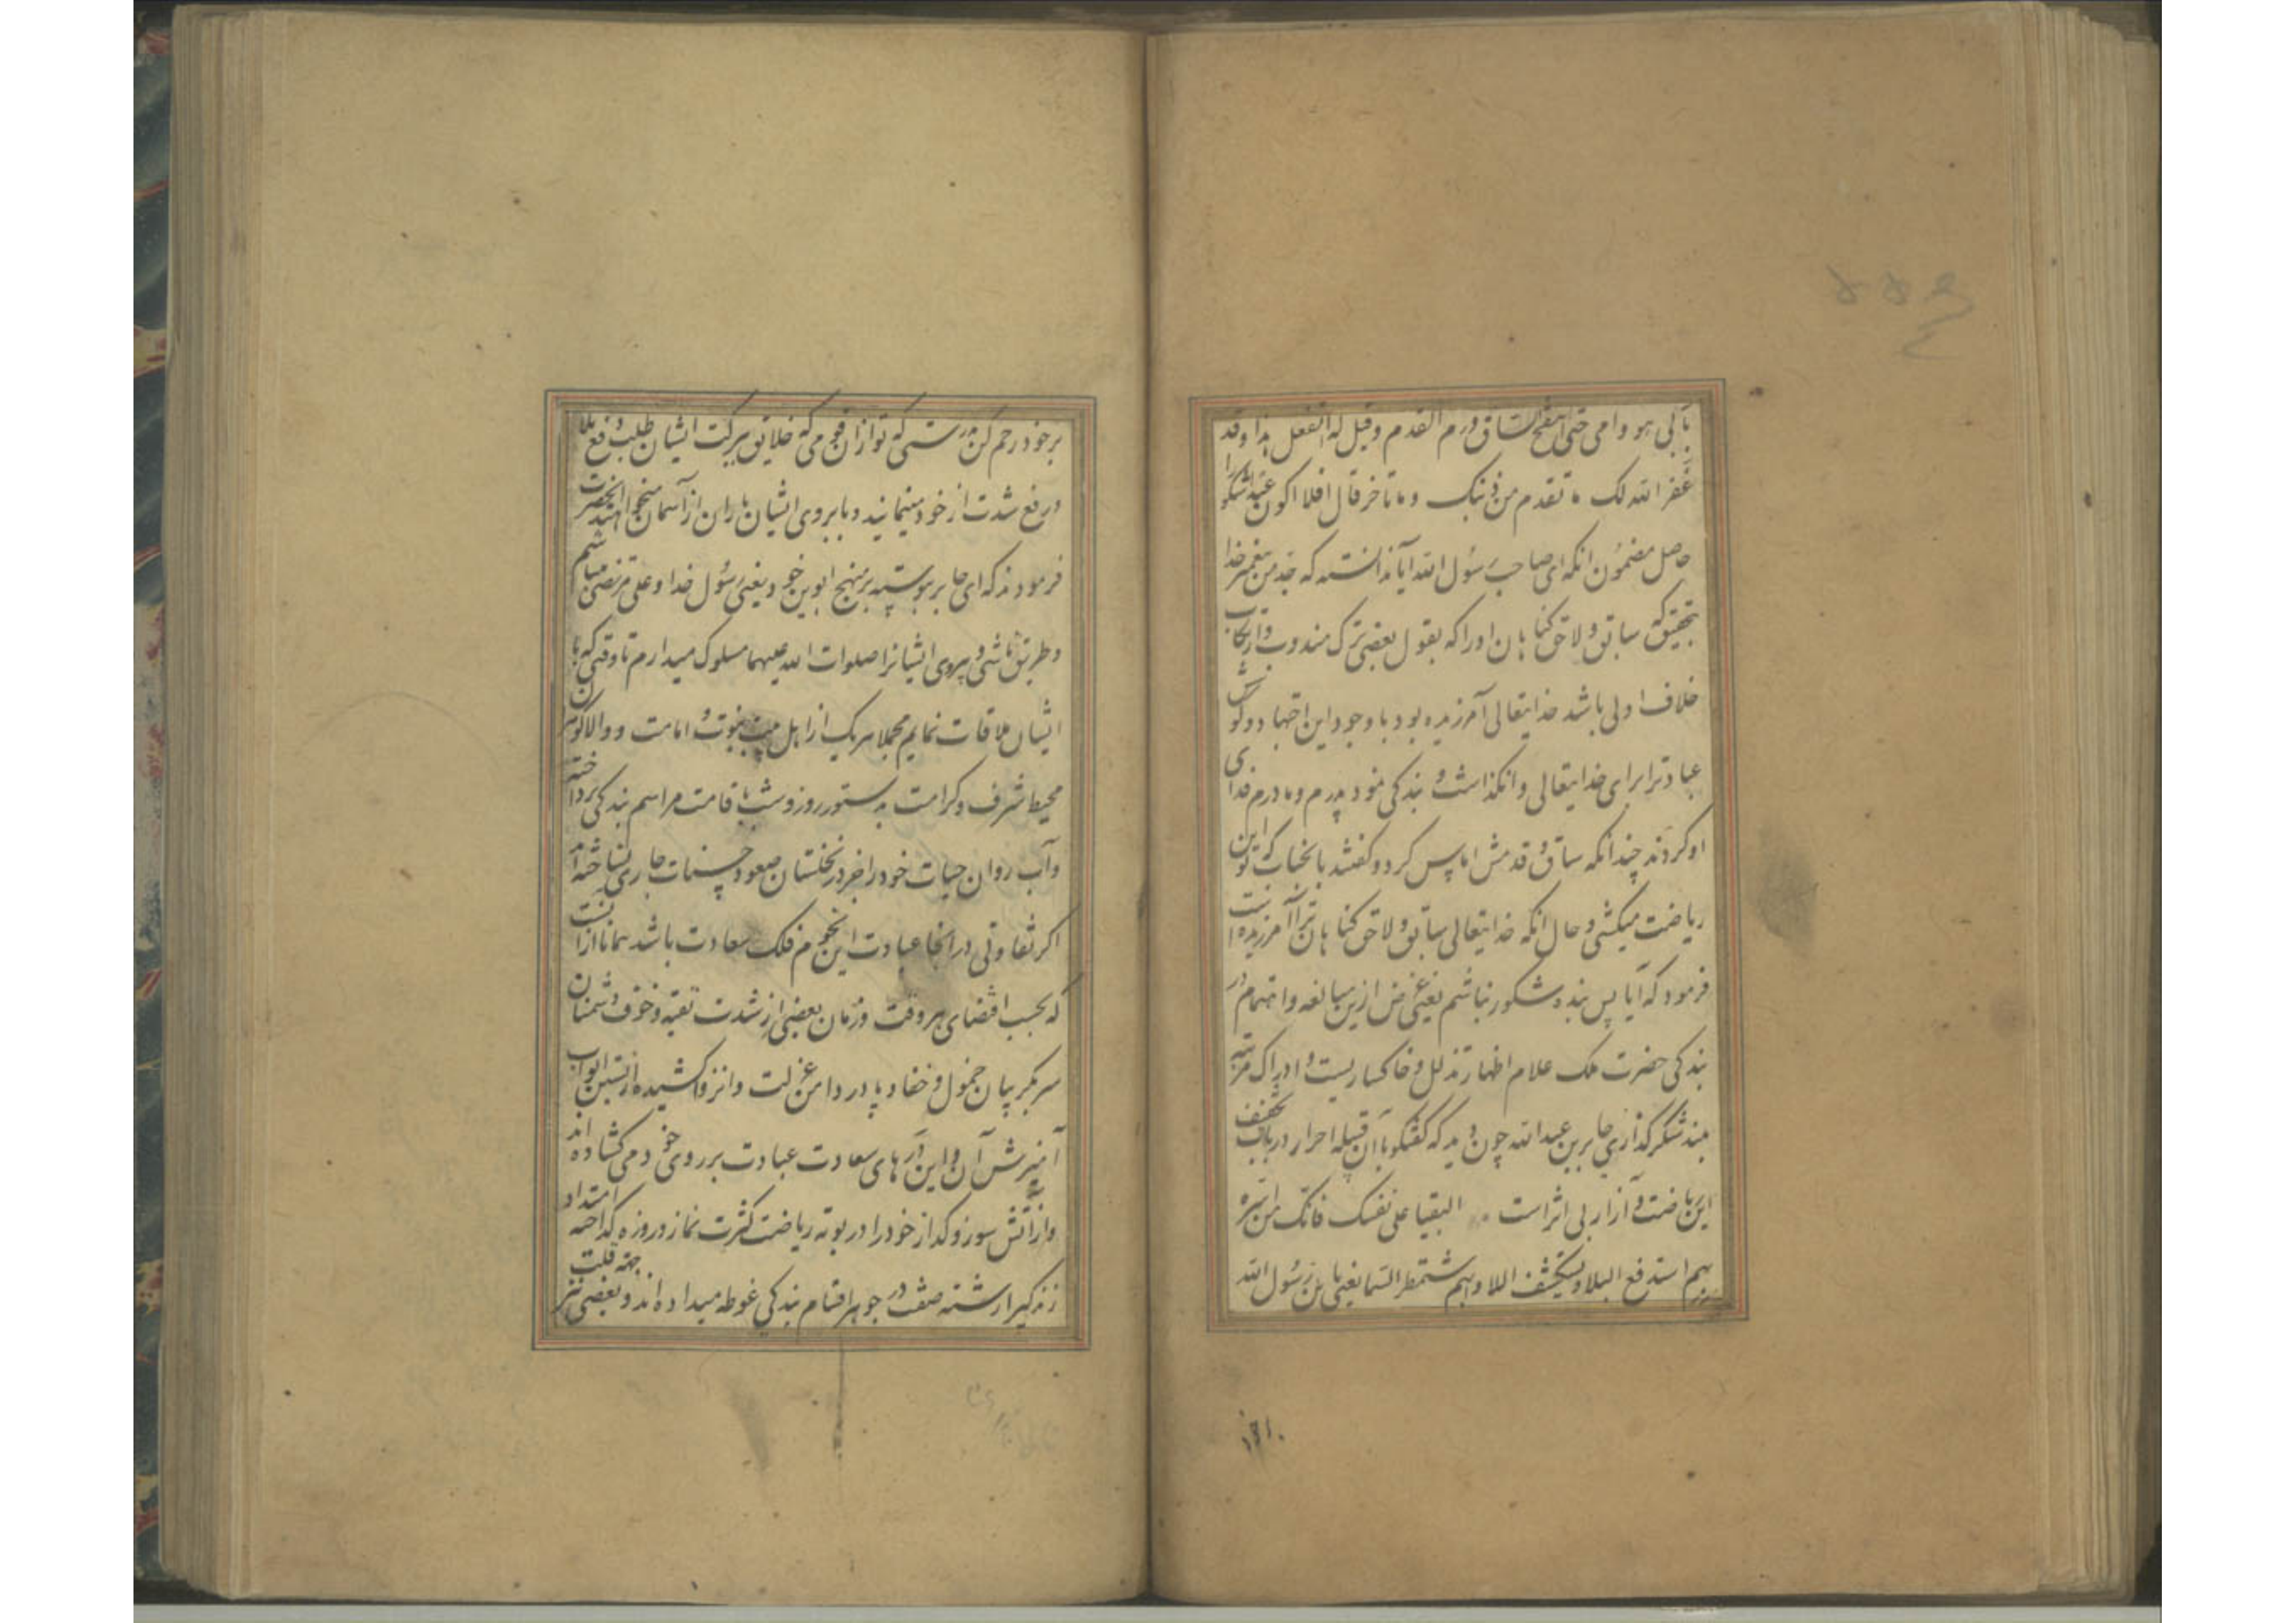 بابی هو وامی حتی انتفخ الساق و ورم القدم وقیل له اتفعل هذا وقد
غفر الله لک ما تقدم من ذنبک وما تاخر قال افلا اکون عبدا شکورا
حاصل مضمون انکه ای صاحب رسول الله آیا ندانسته که جد من پیغمبر خدا
بتحقیق که سابق و لاحق کناهان اورا که بقول بعضی ترک مندوب و ارتکاب
خلاف اولی باشد خدایتعالی آمرزیده بود با وجود این اجتهاد و کوشش
عبادترا برای خدایتعالی وانکذاشت و بندکی نمود پدرم و مادرم فدای
او کردند چندانکه ساق و قدمش اماس کرد و کفتند بانجناب که تو این
ریاضت میکشی و حال انکه خدایتعالی سابق و لاحق کناهان ترا آمرزیده است
فرمود که آیا پس بنده شکور نباشم یعنی غرض ازین مبالغه و اهتمام در
بندکی حضرت ملک علام اظهار تذلل و خاکساریست و ادراک مرتبه
بلند شکر کذاری جابر بن عبدالله چون دید که کفتکو با آن قبیله احرار در باب تخفیف
این ریاضت و آزار بی اثر است البقیا علی نفسک فانک من اسرة
بهم استدفع البلا و یستکشف اللاوا و بهم تستمطر السما یعنی یا بن رسول الله
۱۶۱۰
بر خود رحم کن بدرستی که تو ازان قومی که خلایق ببرکت ایشان طلب دفع بلا
و رفع شدت از خود مینمایند و بابروی ایشان باران از آسمان میخواهند انحضرت
فرمودند که ای جابر پیوسته بر منهج ابوین خود یعنی رسول خدا و علی مرتضی میباشم
و طریق تاسی و پیروی ایشانرا صلوات الله علیهما مسلوک میدارم تا وقتی که با
ایشان ملاقات نمایم مجملا هر یک از اهل بیت نبوت و امامت و والاکوهران
محیط شرف و کرامت بدستور روز و شب باقامت مراسم بندکی پرداخته
و آب روان حیات خود را جز در نخلستان صعود حسنات جاری نساخته اند
اکر تفاوتی در انحا عبادت این انجم فلک سعادت باشد همانا ازانست
که بحسب اقتضای هر وقت و زمان بعضی از شدت تقیه و خوف دشمنان
سر بکریبان خمول و خفا و پا در دامن عزلت و انزوا کشیده از بستن ابواب
آمیزش آن و این درهای سعادت عبادت بر روی خود می کشاده اند
و از آتش سوز و کداز خود را در بوته ریاضت کثرت نماز و روزه کداخته
زندکیرا رشته صفت در جوهر اقسام بندکی غوطه میداده اند و بعضی نیز بجهة قلت